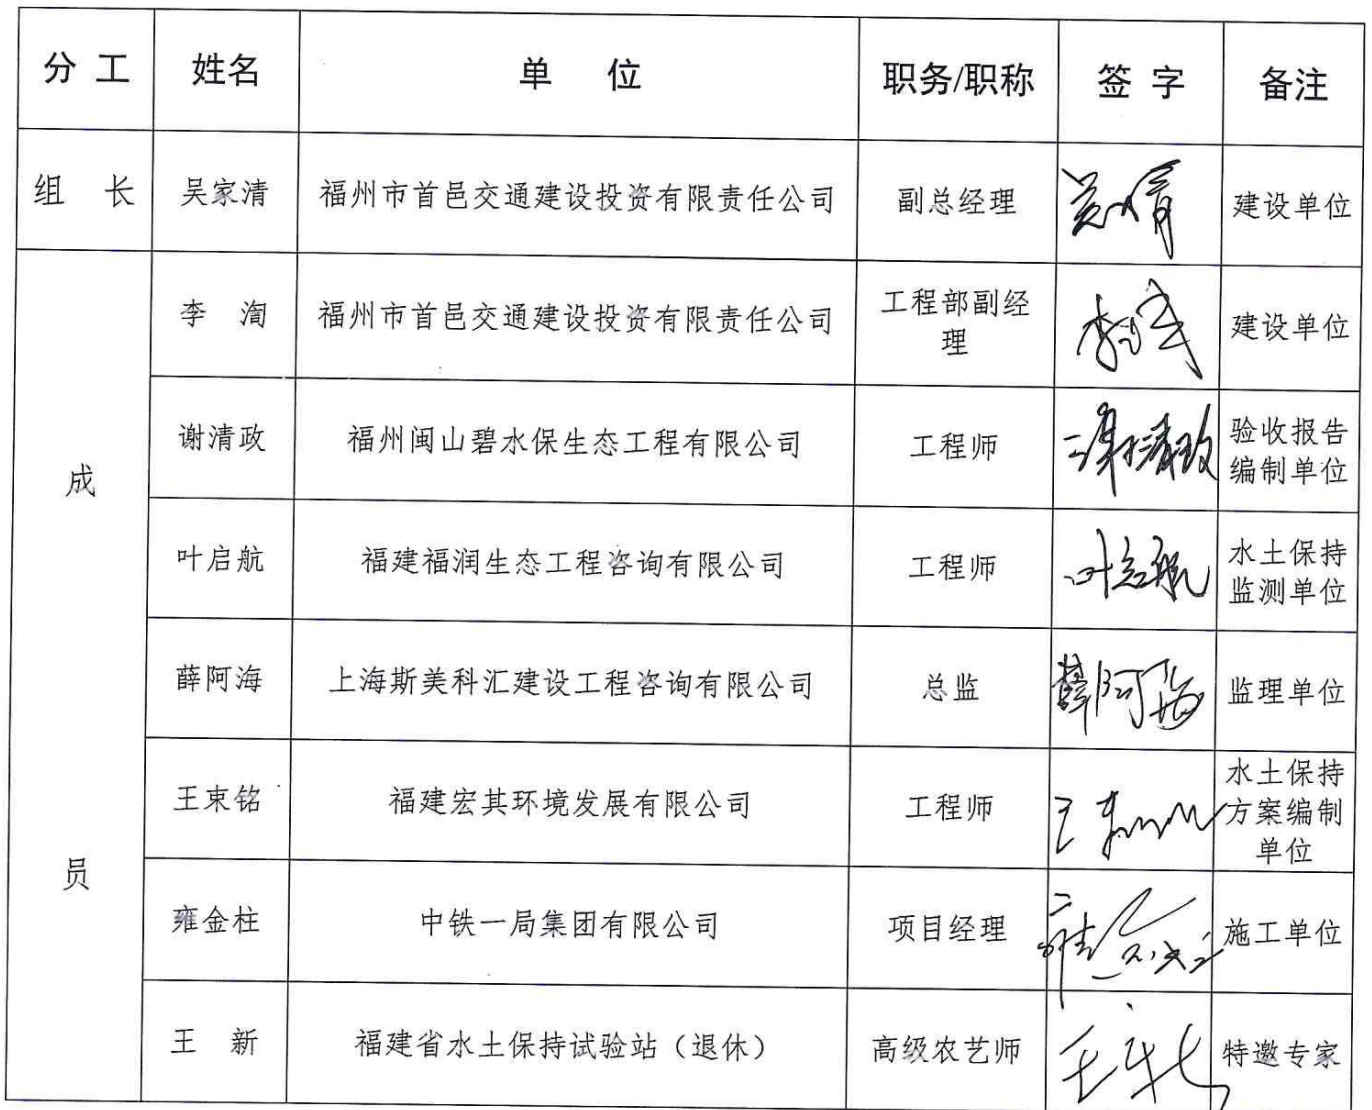 分 工 姓名 单 位 职务/职称 签 字 备注
组 长 吴家清 福州市首邑交通建设投资有限责任公司 副总经理 建设单位
成
员
李 淘 福州市首邑交通建设投资有限责任公司 工程部副经
理 建设单位
谢清政 福州闽山碧水保生态工程有限公司 工程师 谢清政 验收报告
编制单位
叶启航 福建福润生态工程咨询有限公司 工程师 叶启航 水土保持
监测单位
薛阿海 上海斯美科汇建设工程咨询有限公司 总监 薛阿海 监理单位
王束铭 福建宏其环境发展有限公司 工程师 水土保持
方案编制
单位
雍金柱 中铁一局集团有限公司 项目经理 施工单位
王 新 福建省水土保持试验站（退休） 高级农艺师 王新 特邀专家